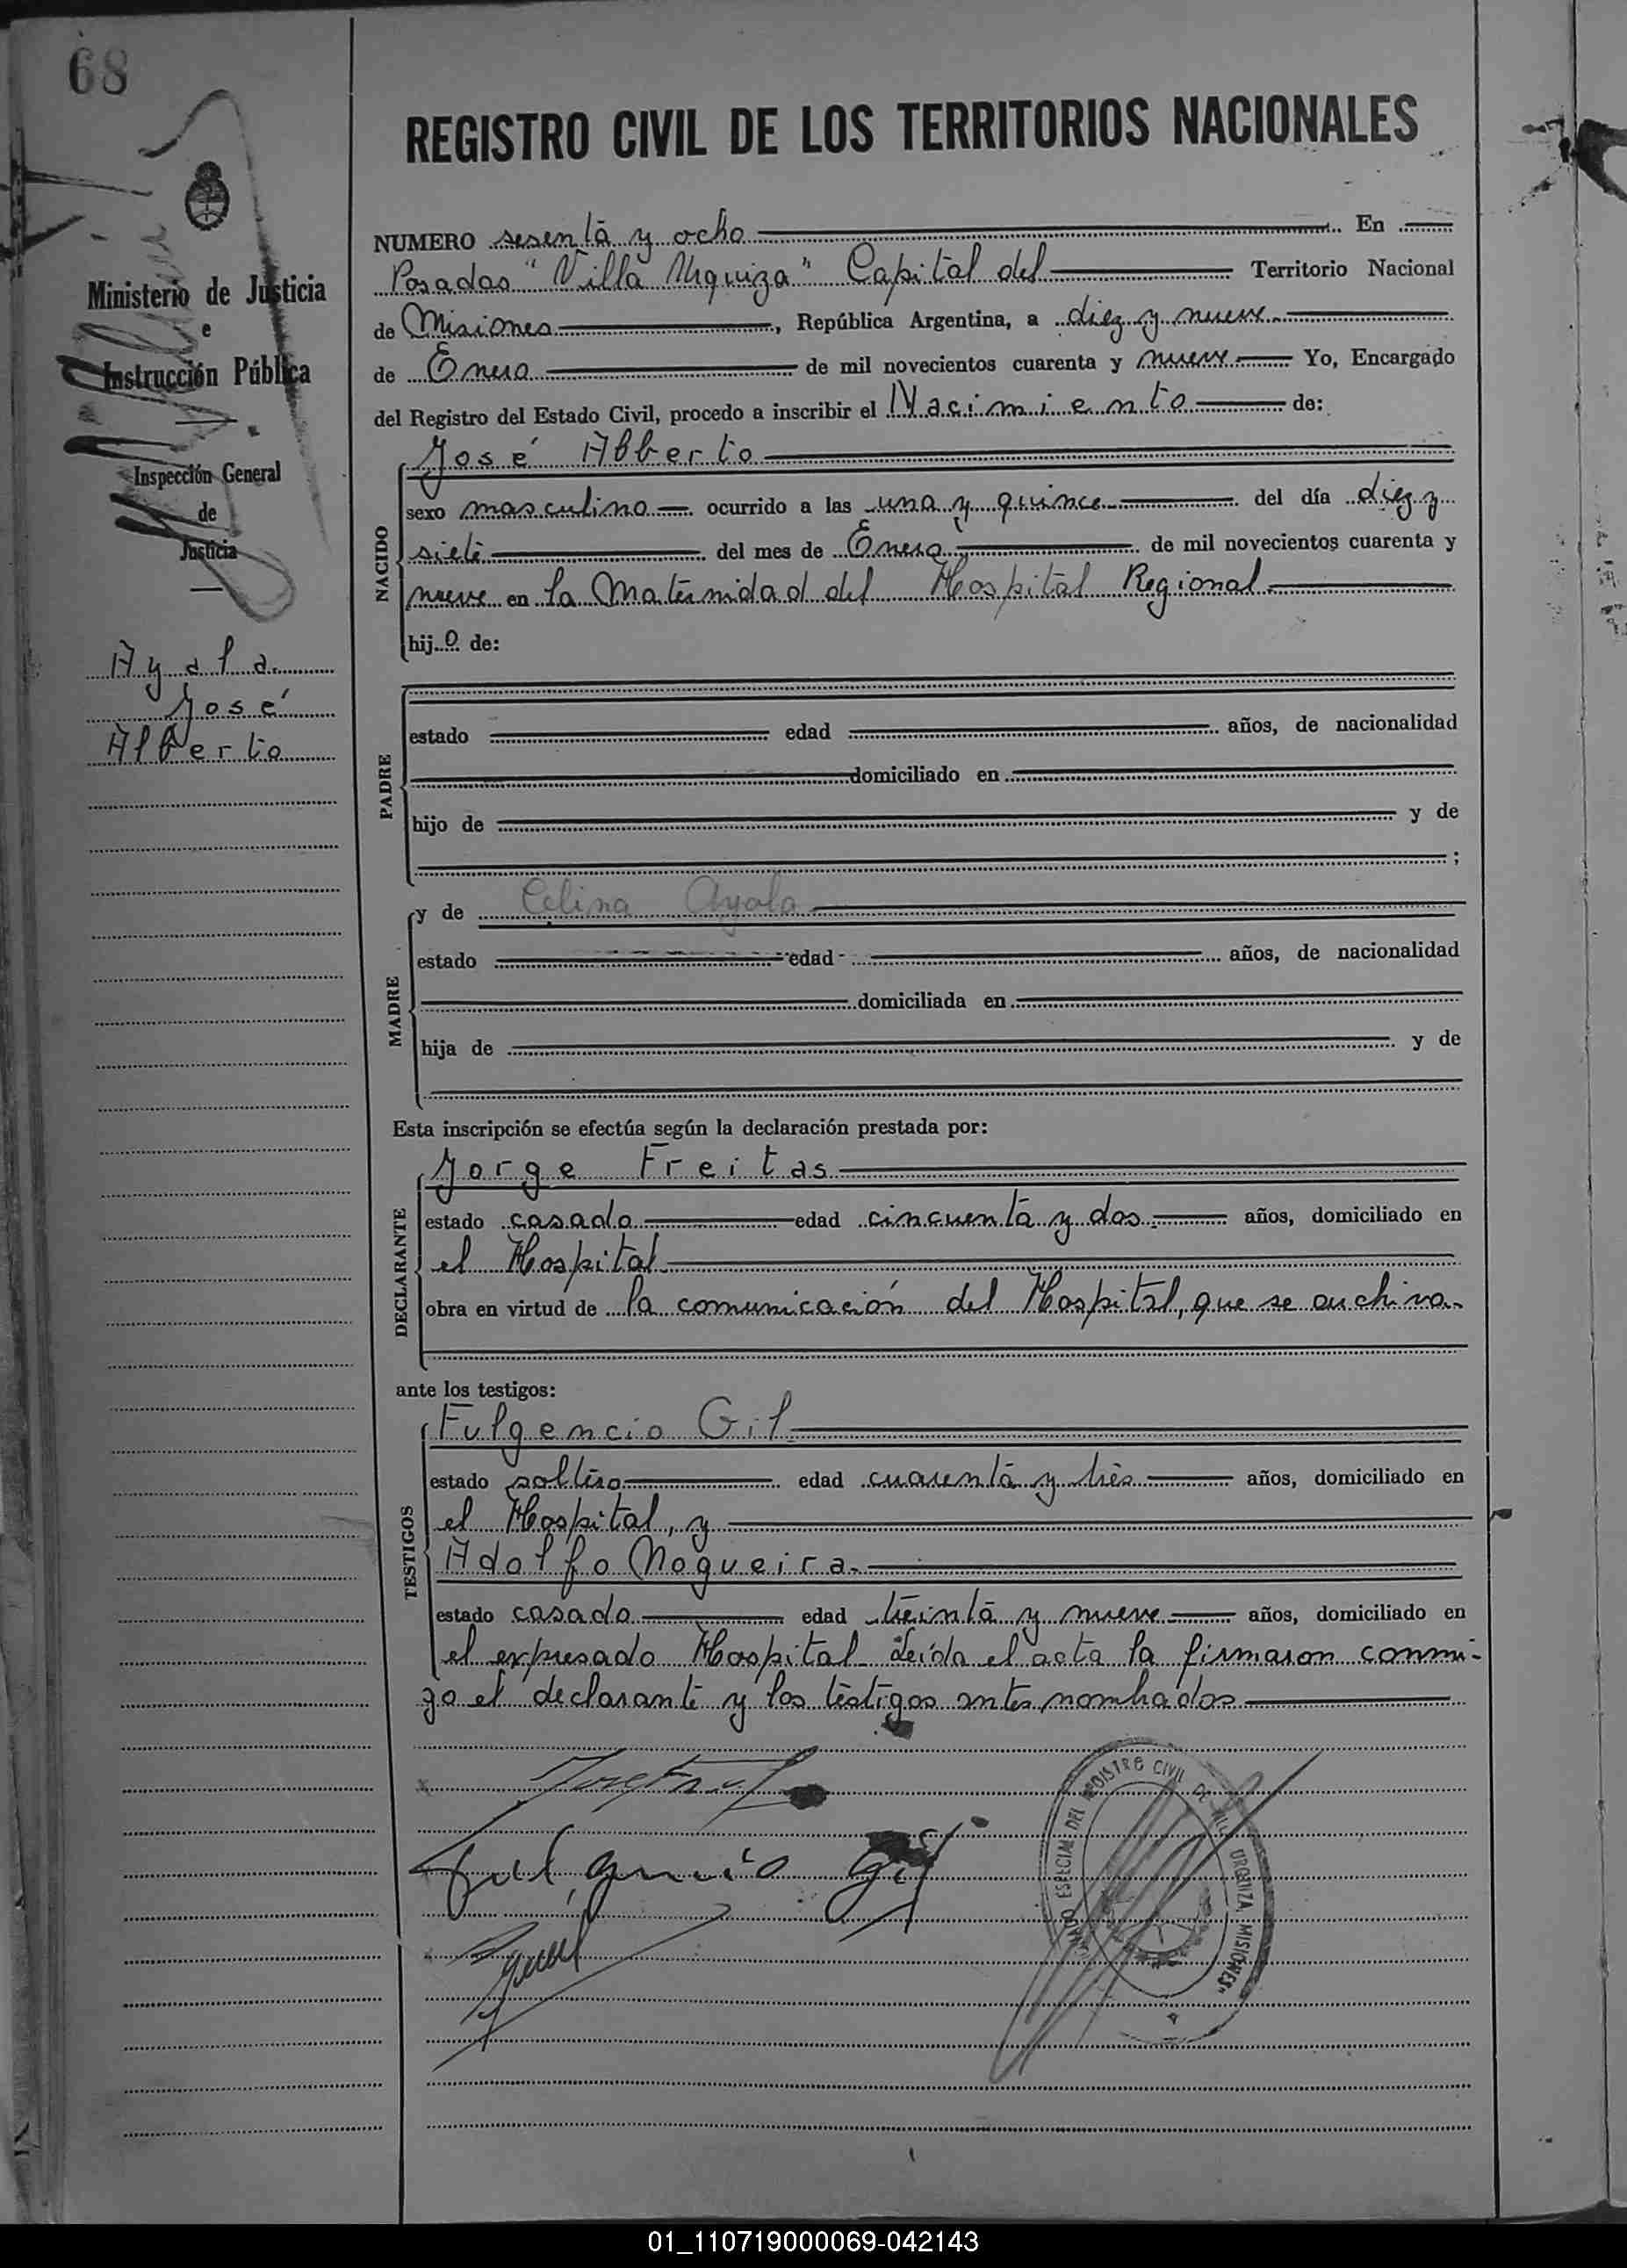 68
REGISTRO CIVIL DE LOS TERRITORIOS NACIONALES
Ministerio de Justicia
e
Instrucción Pública
Inspección General
de
Justicia
Ayala
José
Alberto
NUMERO sesenta y ocho En
Posadas "Villa Urquiza" Capital del Territorio Nacional
de Misiones, República Argentina, a diez y nueve
de Enero de mil novecientos cuarenta y nueve Yo, Encargado
del Registro del Estado Civil, procedo a inscribir el Nacimiento de:
NACIDO
José Alberto
sexo masculino ocurrido a las una y quince del día diez y
siete del mes de Enero de mil novecientos cuarenta y
nueve en la Maternidad del Hospital Regional
hijo de:
PADRE
estado edad años, de nacionalidad
domiciliado en
hijo de y de
;
MADRE
y de Celina Ayala
estado edad años, de nacionalidad
domiciliada en
hija de y de
Esta inscripción se efectúa según la declaración prestada por:
DECLARANTE
Jorge Freitas
estado casado edad cincuenta y dos años, domiciliado en
el Hospital
obra en virtud de la comunicación del Hospital, que se archiva.
ante los testigos:
TESTIGOS
Fulgencio Gil
estado soltero edad cuarenta y tres años, domiciliado en
el Hospital, y
Adolfo Nogueira.
estado casado edad treinta y nueve años, domiciliado en
el expresado Hospital. Leída el acta la firmaron conmi-
go el declarante y los testigos antes nombrados
Fulgencio Gil
ESPECIAL DEL REGISTRO CIVIL DE VILLA URQUIZA, MISIONES"
01_110719000069-042143